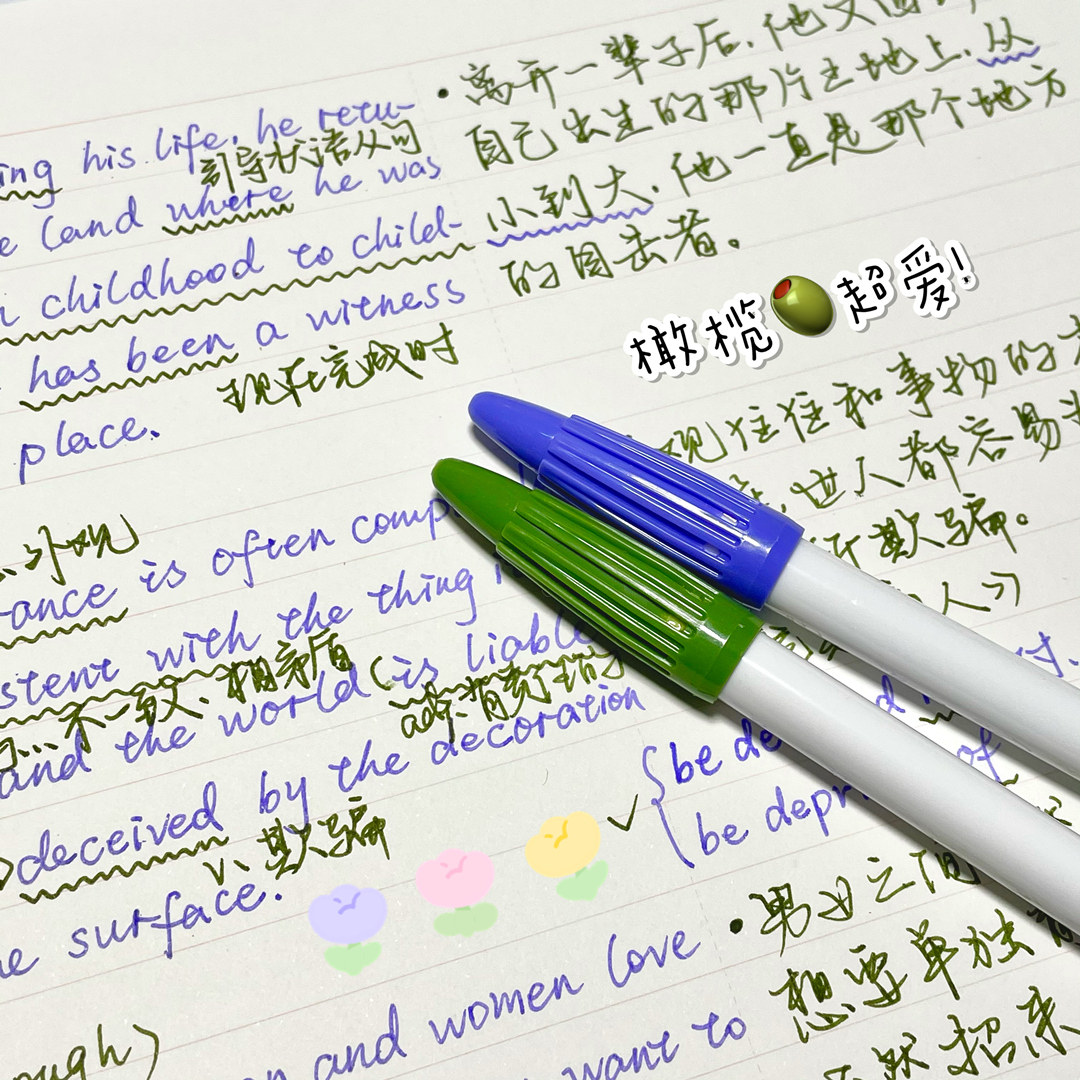 ing his life, he retu-
引导状语从句
e land where he was
childhood to child-
has been a witness
现在完成时
place.
· 离开一辈子后，他又回
自己出生的那片土地上。从
小到大，他一直是那个地方
的目击者。
橄榄 超爱！
外观
ance is often comp
stent with the thing
不一致、相矛盾
and the world (is liable
adj.
deceived by the decoration
v. 欺骗
e surface.
观往往和事物的
世人都容易
欺骗。
be de
be depr
of
· 男女之间
想要单独
and women love
want to
ough)